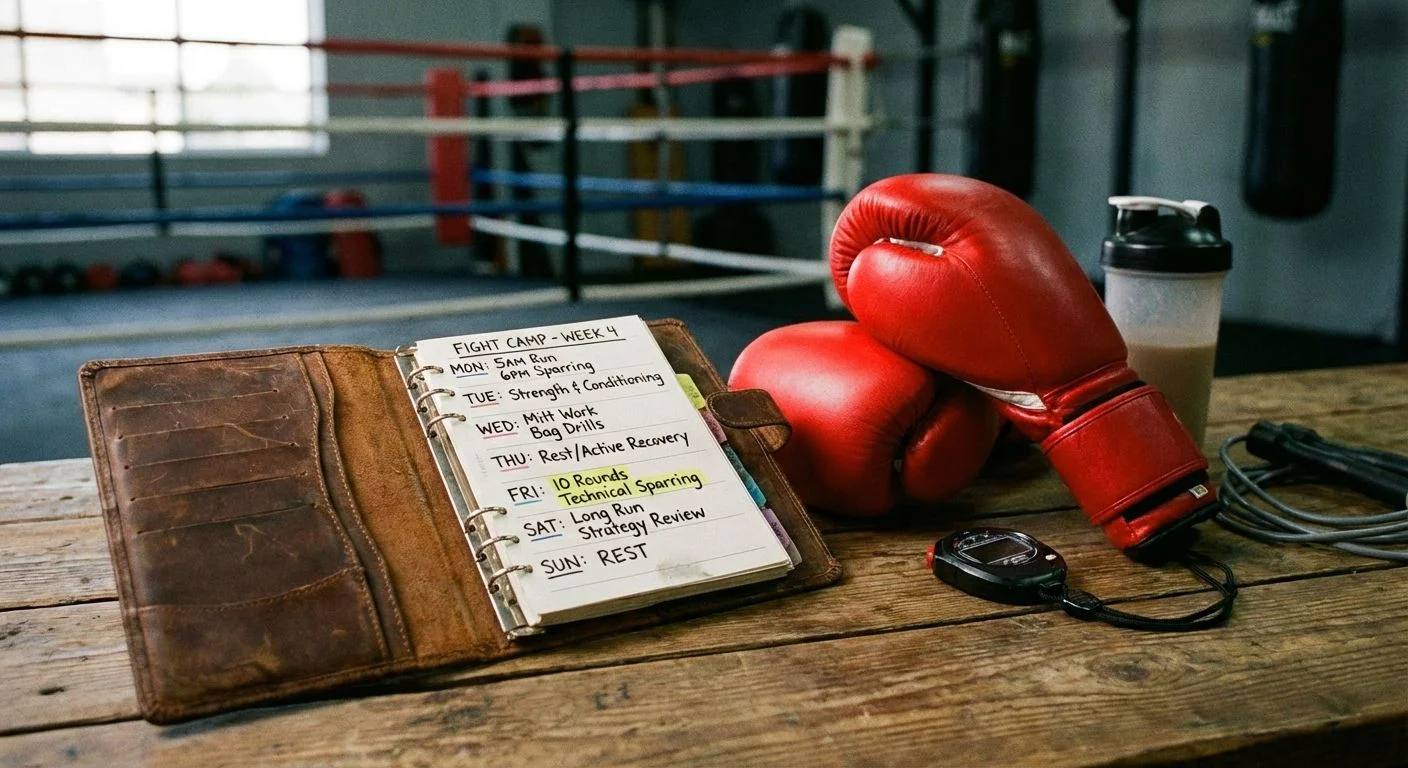 FIGHT CAMP - WEEK 4
MON: 5AM Run
6PM Sparring
TUE: Strength & Conditioning
WED: Mitt Work
Bag Drills
THU: Rest/Active Recovery
FRI: 10 Rounds
Technical Sparring
SAT: Long Run
Strategy Review
SUN: REST